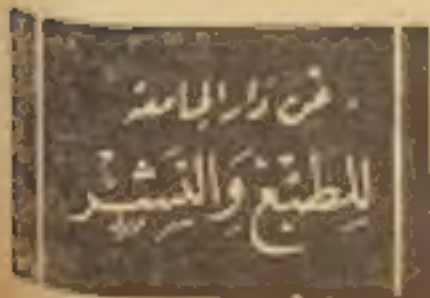 فى دار الجامعة
للطبع والنشر